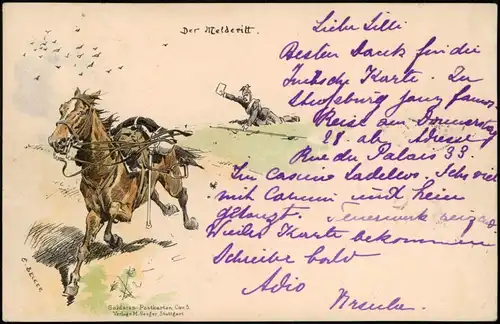 Der Melderitt.
Liebe Lilli
Besten Dank für die
hübsche Karte. In
Straßburg ganz famos,
Reise am Donnerstag
28 ab Adresse
Rue du Palais 33.
Im Casino tadellos. Sehr viel
mit Cammi und hein
getanzt. Feuerwerk
Karte bekommen
Schreibe bald
Adio
Ursula.
C. BECKER
Soldaten-Postkarten Ser. 5.
Verlag v. M. Seeger, Stuttgart